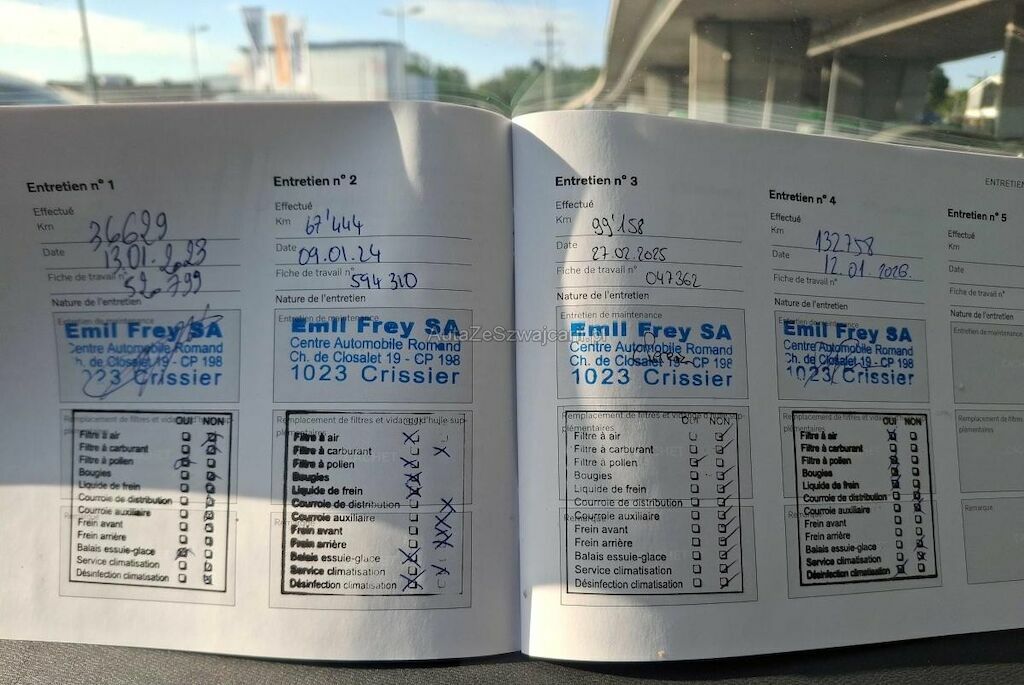 Entretien n° 1
Effectué
Km 36629
Date 13.01.2023
Fiche de travail n° 526799
Nature de l'entretien
Entretien de maintenance
Emil Frey SA
Centre Automobile Romand
Ch. de Closalet 19 - CP 198
1023 Crissier
Remplacement de filtres et vidange d'huile sup-
plémentaires
OUI NON
Filtre à air
Filtre à carburant
Filtre à pollen
Bougies
Liquide de frein
Courroie de distribution
Courroie auxiliaire
Frein avant
Frein arrière
Balais essuie-glace
Service climatisation
Désinfection climatisation
Entretien n° 2
Effectué
Km 67'444
Date 09.01.24
Fiche de travail n° 594 310
Nature de l'entretien
Entretien de maintenance
Emil Frey SA
Centre Automobile Romand
Ch. de Closalet 19 - CP 198
1023 Crissier
Remplacement de filtres et vidange d'huile sup-
plémentaires
Filtre à air
Filtre à carburant
Filtre à pollen
Bougies
Liquide de frein
Courroie de distribution
Courroie auxiliaire
Frein avant
Frein arrière
Balais essuie-glace
Service climatisation
Désinfection climatisation
Entretien n° 3
Effectué
Km 99'158
Date 27.02.2025
Fiche de travail n° 047362
Nature de l'entretien
Entretien de maintenance
Emil Frey SA
Centre Automobile Romand
Ch. de Closalet 19 - CP 198
1023 Crissier
Remplacement de filtres et vidange d'huile sup-
plémentaires
OUI NON
Filtre à air
Filtre à carburant
Filtre à pollen
Bougies
Liquide de frein
Courroie de distribution
Courroie auxiliaire
Frein avant
Frein arrière
Balais essuie-glace
Service climatisation
Désinfection climatisation
Entretien n° 4
Effectué
Km 132758
Date 12.01.2026.
Fiche de travail n°
Nature de l'entretien
Entretien de maintenance
Emil Frey SA
Centre Automobile Romand
Ch. de Closalet 19 - CP 198
1023 Crissier
Remplacement de filtres et vidange d'huile sup-
plémentaires
OUI NON
Filtre à air
Filtre à carburant
Filtre à pollen
Bougies
Liquide de frein
Courroie de distribution
Courroie auxiliaire
Frein avant
Frein arrière
Balais essuie-glace
Service climatisation
Désinfection climatisation
ENTRETIEN
Entretien n° 5
Effectué
Km
Date
Fiche de travail
Nature de l'entretien
Entretien de maintenance
Remplacement de filtres
plémentaires
Remarque
AutaZeSzwajcarii.pl